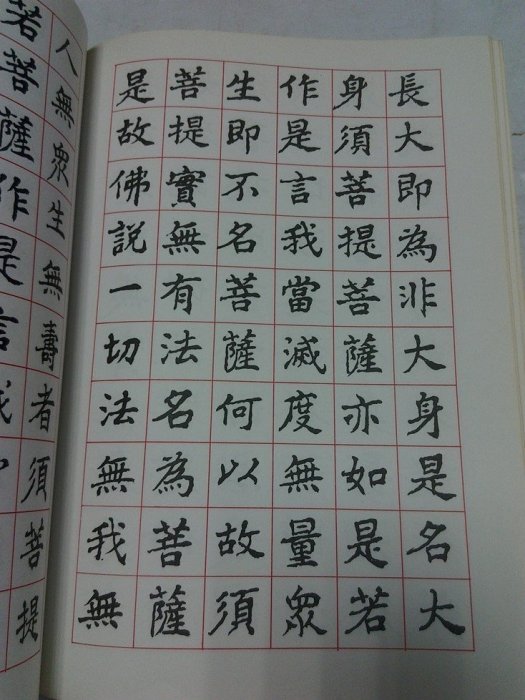 長大即為非大身是名大
身須菩提菩薩亦如是若
作是言我當滅度無量眾
生即不名菩薩何以故須
菩提實無有法名為菩薩
是故佛說一切法無我無
人無眾生無壽者須菩提
若菩薩作是言我